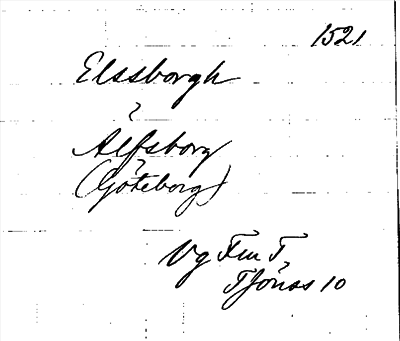 1521
Elssborgh
?
Alfsborg
?
(Göteborg)
Vg Fm T,
Tfönss 10